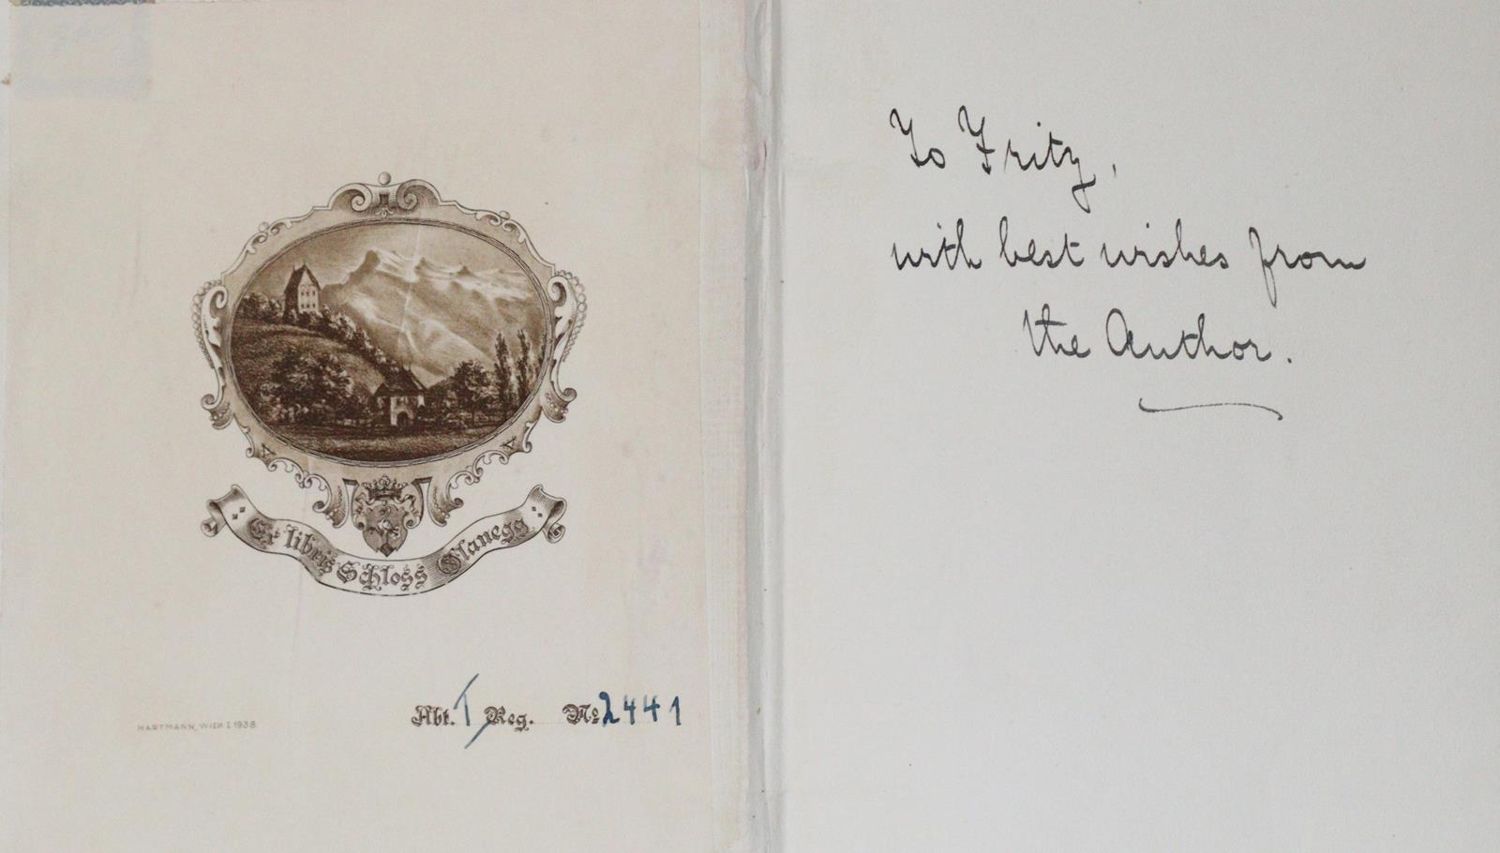 Ex libris Schloss Glanegg
HARTMANN, WIEN I. 1938
Abt. I Reg. No 2441
To Fritz,
with best wishes from
the Author.